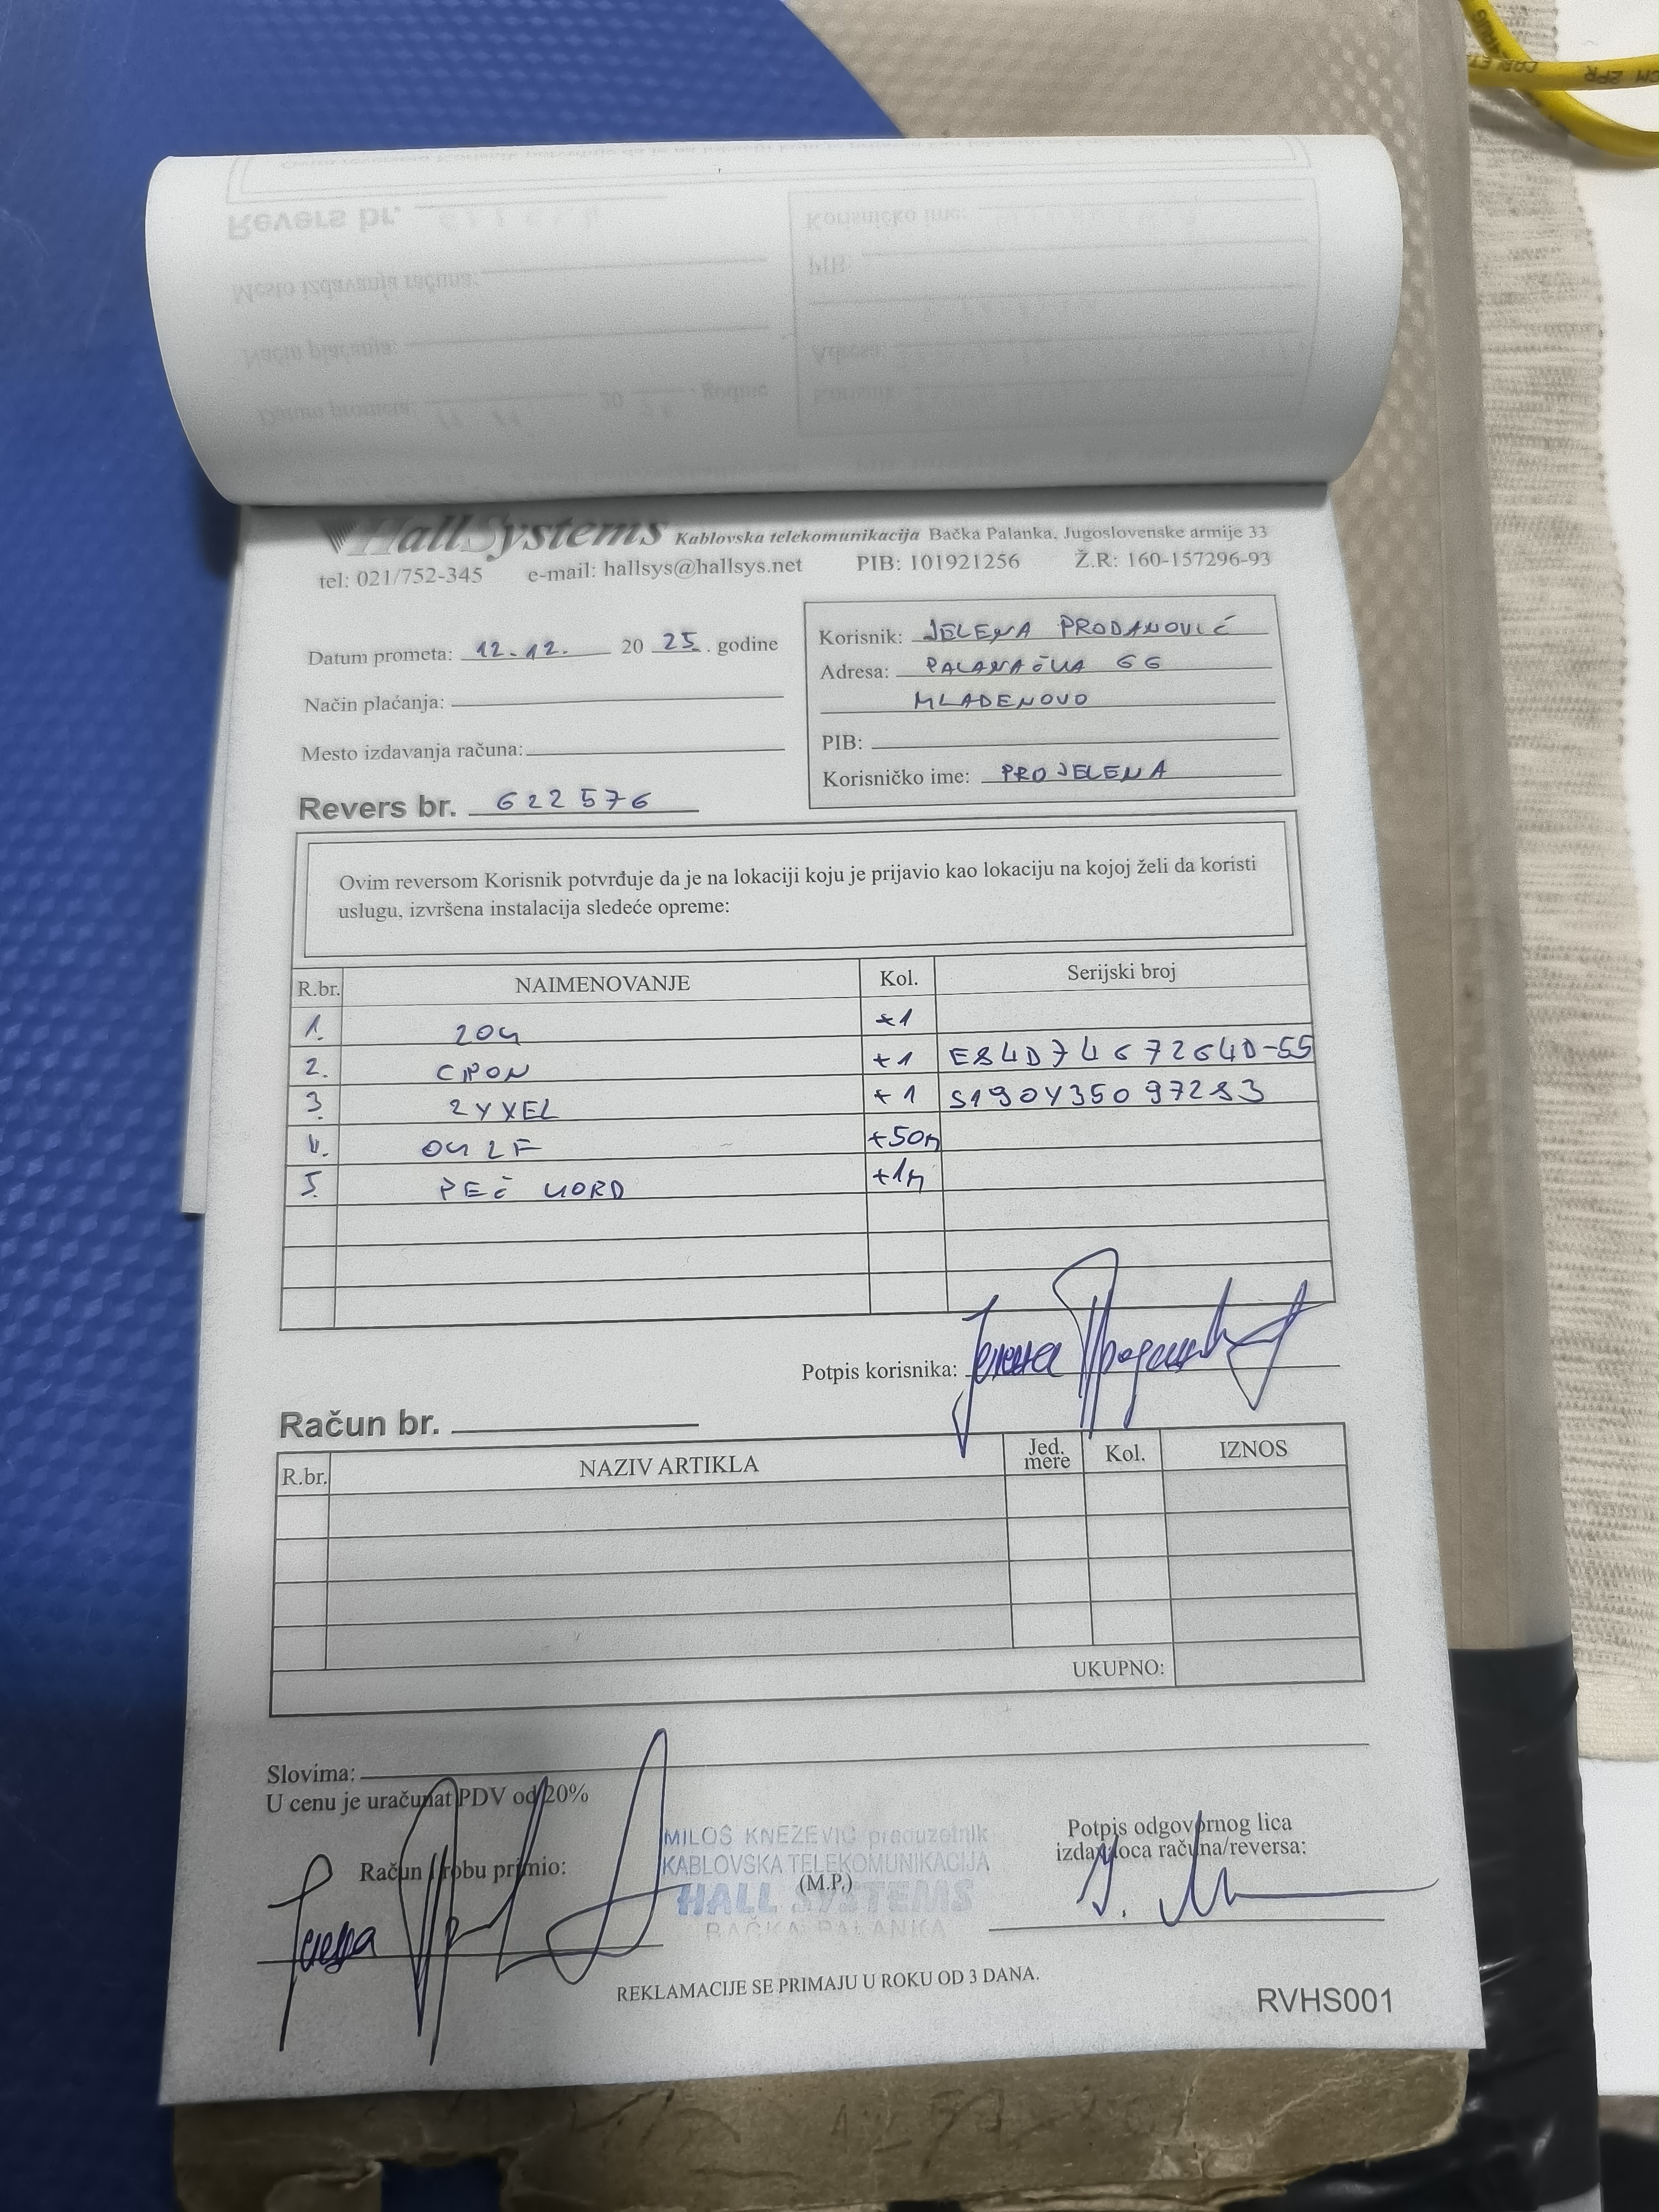 Revers br.
Korisničko ime:
PIB:
Mesto izdavanja računa:
Način plaćanja:
Adresa:
Datum prometa: 20 godine
Korisnik:
HallSystems Kablovska telekomunikacija Bačka Palanka, Jugoslovenske armije 33
tel: 021/752-345 e-mail: hallsys@hallsys.net PIB: 101921256 Ž.R: 160-157296-93
Datum prometa: 12.12. 20 25. godine
Način plaćanja:
Mesto izdavanja računa:
Revers br. 622576
Korisnik: JELENA PRODANOVIĆ
Adresa: PALANAČKA 66
MLADENOVO
PIB:
Korisničko ime: PROJELENA
Ovim reversom Korisnik potvrđuje da je na lokaciji koju je prijavio kao lokaciju na kojoj želi da koristi
uslugu, izvršena instalacija sledeće opreme:
R.br. NAIMENOVANJE Kol. Serijski broj
1. ZOK +1
2. CPON +1 E84D74672640-55
3. ZYXEL +1 S190Y35097283
4. OK 2F +50m
5. PEČ KORD +1m
Potpis korisnika: Јелена Продановић
Račun br.
R.br. NAZIV ARTIKLA Jed. mere Kol. IZNOS
UKUPNO:
Slovima:
U cenu je uračunat PDV od 20%
Račun i robu primio:
MILOŠ KNEŽEVIĆ preduzetnik
KABLOVSKA TELEKOMUNIKACIJA
(M.P.)
HALL SYSTEMS
BAČKA PALANKA
Potpis odgovornog lica
izdavaoca računa/reversa:
REKLAMACIJE SE PRIMAJU U ROKU OD 3 DANA.
RVHS001